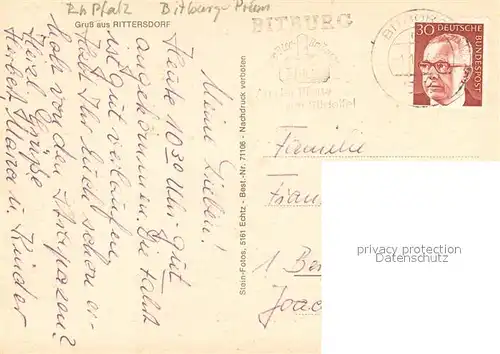 Rh Pfalz Bitburg-Prüm
Gruß aus RITTERSDORF
BITBURG
30 DEUTSCHE
BUNDESPOST
Meine Lieben!
Heute 10 30 Uhr gut
angekommen. Die Fahrt
ist gut verlaufen
Habt Ihr Euch schon er-
holt von den Strapazen?
Viele Grüße
Herbert, Maria u. Kinder
Stein-Fotos, 5161 Echtz - Best.-Nr. 71106 - Nachdruck verboten
Familie
1 Ber
Joac
privacy protection
Datenschutz